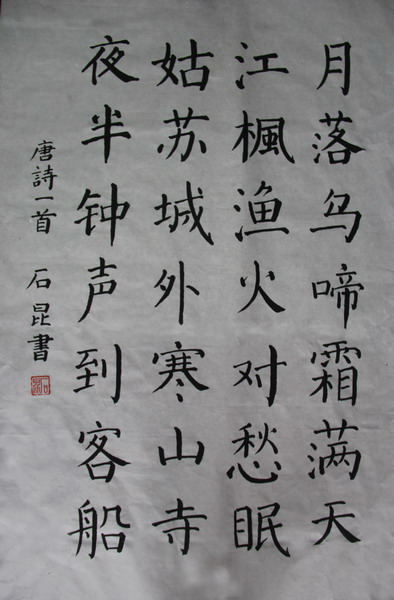 月落乌啼霜满天
江楓渔火对愁眠
姑苏城外寒山寺
夜半钟声到客船
唐詩一首 石昆書